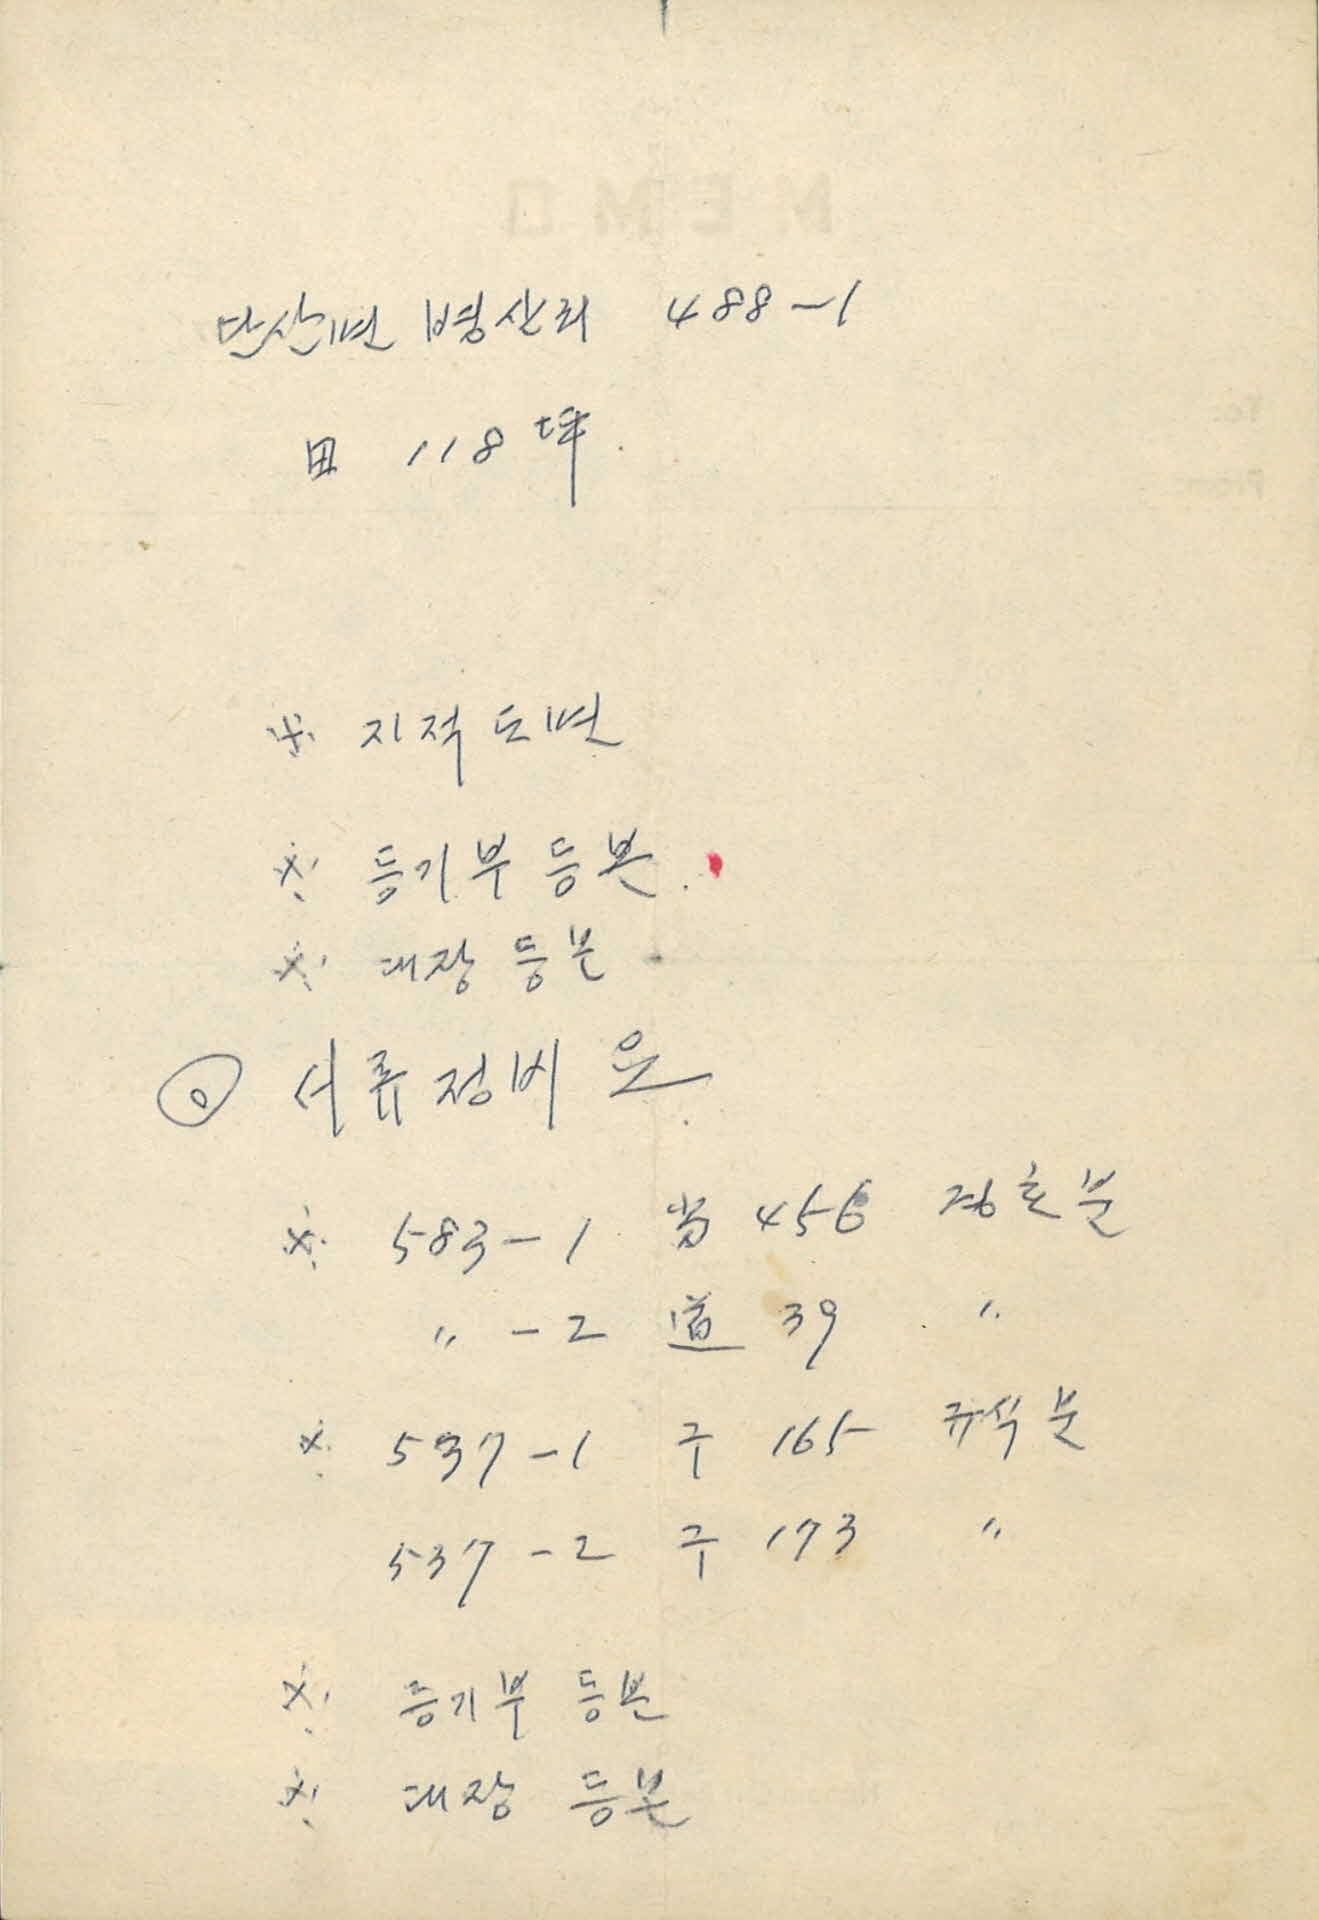 단산면 병산리 488-1
田 118坪.
※ 지적도면
※ 등기부 등본.
※ 대장 등본
◎ 서류정비 운
※ 583-1 456 정호분
〃 -2 道 39 〃
※ 537-1 구 165 규식분
537-2 구 173 〃
※ 등기부 등본
※ 대장 등본